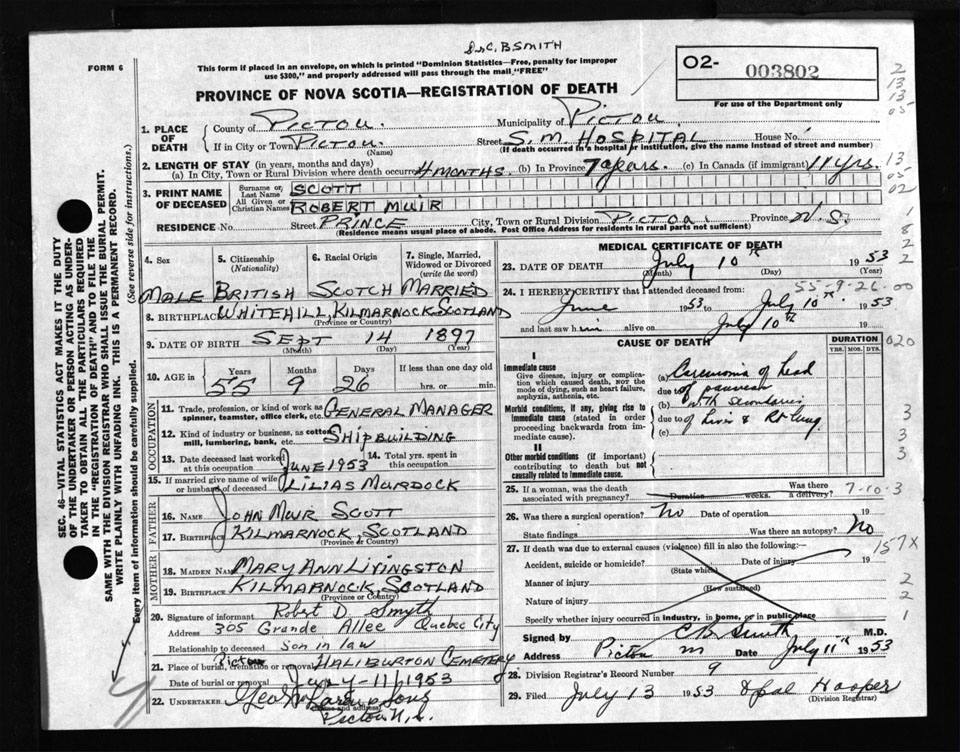 Dr C. B SMITH
FORM 6
This form if placed in an envelope, on which is printed "Dominion Statistics—Free, penalty for improper
use $300," and properly addressed will pass through the mail "FREE"
O2- 003802
For use of the Department only
PROVINCE OF NOVA SCOTIA—REGISTRATION OF DEATH
2
13
13
05
1. PLACE OF DEATH
County of PICTOU. Municipality of PICTOU.
If in City or Town PICTOU. Street S.M. HOSPITAL House No.
(Name) (If death occurred in a hospital or institution, give the name instead of street and number)
2. LENGTH OF STAY (in years, months and days)
(a) In City, Town or Rural Division where death occurred 4 MONTHS. (b) In Province 7 years. (c) In Canada (if immigrant) 11 yrs.
13
05
02
3. PRINT NAME OF DECEASED
Surname or Last Name SCOTT
All Given or Christian Names ROBERT MUIR
RESIDENCE No. Street PRINCE City, Town or Rural Division PICTOU. Province N.S.
(Residence means usual place of abode. Post Office Address for residents in rural parts not sufficient)
1
8
2
2
4. Sex 5. Citizenship (Nationality) 6. Racial Origin 7. Single, Married, Widowed or Divorced (write the word)
MALE BRITISH SCOTCH MARRIED
8. BIRTHPLACE WHITEHILL, KILMARNOCK, SCOTLAND
(Province or Country)
9. DATE OF BIRTH SEPT 14 1897
(Month) (Day) (Year)
10. AGE in Years Months Days If less than one day old
55 9 26 hrs. or min.
OCCUPATION
11. Trade, profession, or kind of work as spinner, teamster, office clerk, etc. GENERAL MANAGER
12. Kind of industry or business, as cotton mill, lumbering, bank, etc. SHIPBUILDING
13. Date deceased last worked at this occupation JUNE 1953 14. Total yrs. spent in this occupation
15. If married give name of wife or husband of deceased LILIAS MURDOCK
FATHER
16. Name JOHN MUIR SCOTT
17. Birthplace KILMARNOCK, SCOTLAND
(Province or Country)
MOTHER
18. Maiden Name MARY ANN LIVINGSTON
19. Birthplace KILMARNOCK, SCOTLAND
(Province or Country)
20. Signature of informant Robert D. Smyth
Address 305 Grande Allee Quebec City
Relationship to deceased Son in law
21. Place of burial, cremation or removal Pictou HALIBURTON CEMETERY
Date of burial or removal JULY-11/1953
22. UNDERTAKER Sons
Pictou N.S.
MEDICAL CERTIFICATE OF DEATH
23. DATE OF DEATH July 10th 1953
(Month) (Day) (Year)
55-9-26-00
24. I HEREBY CERTIFY that I attended deceased from:
June 1953 to July 10th 1953
and last saw him alive on July 10th 19
CAUSE OF DEATH DURATION
YRS. MOS. DYS.
020
I
Immediate cause
Give disease, injury or complication which caused death, NOT the mode of dying, such as heart failure, asphyxia, asthenia, etc.
Morbid conditions, if any, giving rise to immediate cause (stated in order proceeding backwards from immediate cause).
II
Other morbid conditions (if important) contributing to death but not causally related to immediate cause.
(a) Carcinoma of head
due to of pancreas
(b) with secondaries
due to of Liver & Rt lung
(c)
3
3
3
25. If a woman, was the death associated with pregnancy? Duration weeks. Was there a delivery? 7-10-3
26. Was there a surgical operation? No Date of operation 19
State findings Was there an autopsy? No
27. If death was due to external causes (violence) fill in also the following:— 157X
Accident, suicide or homicide? Date of injury 19
(State which)
Manner of injury 2
(How sustained)
Nature of injury 2
Specify whether injury occurred in industry, in home, or in public place 1
Signed by C B Smith M.D.
Address Pictou Date July 11th 1953
28. Division Registrar's Record Number 9
29. Filed July 13 1953 Opal Hooper
(Division Registrar)
SEC. 46—VITAL STATISTICS ACT MAKES IT THE DUTY
OF THE UNDERTAKER OR PERSON ACTING AS UNDER-
TAKER TO OBTAIN ALL THE PARTICULARS REQUIRED
IN THE "REGISTRATION OF DEATH" AND TO FILE THE
SAME WITH THE DIVISION REGISTRAR WHO SHALL ISSUE THE BURIAL PERMIT.
WRITE PLAINLY WITH UNFADING INK. THIS IS A PERMANENT RECORD.
Every item of information should be carefully supplied. (See reverse side for instructions.)